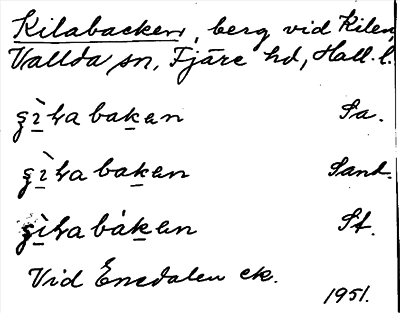 Kilabacken, berg vid Kilen,
Vallda sn, Fjäre hd, Hall. l.
ʂìɬabaken Sa.
ʂìɬabaken Sand.
ʂìɬabàken St.
Vid Enedalen ek.
1951.